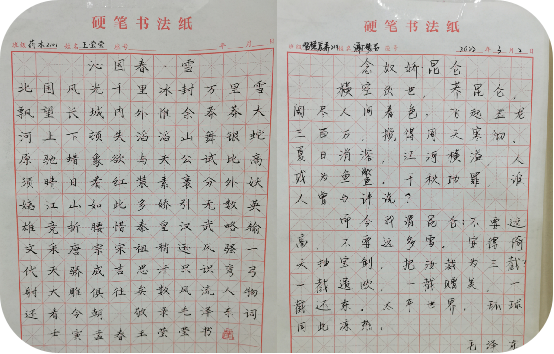 硬笔书法纸
班级 姓名 王莹莹 学号 年 月 日
沁园春·雪
北国风光千里冰封万里雪
飘望长城内外惟余莽莽大
河上下顿失滔滔山舞银蛇
原驰蜡象欲与天公试比高
须晴日看红装素裹分外妖
娆江山如此多娇引无数英
雄竞折腰惜秦皇汉武略输
文采唐宗宋祖稍逊风骚一
代天骄成吉思汗只识弯弓
射大雕俱往矣数风流人物
还看今朝毛泽东词
壬寅孟春王莹莹书
硬笔书法纸
班级 姓名 学号 2022 年 3 月 2 日
念奴娇·昆仑
横空出世,莽昆仑,
阅尽人间春色。飞起玉龙
三百万,搅得周天寒彻。
夏日消溶,江河横溢,人
或为鱼鳖。千秋功罪,谁
人曾与评说?
而今我谓昆仑:不要这
高,不要这多雪。安得倚
天抽宝剑,把汝裁为三截?
一截遗欧,一截赠美,一
截还东。太平世界,环球
同此凉热。
毛泽东